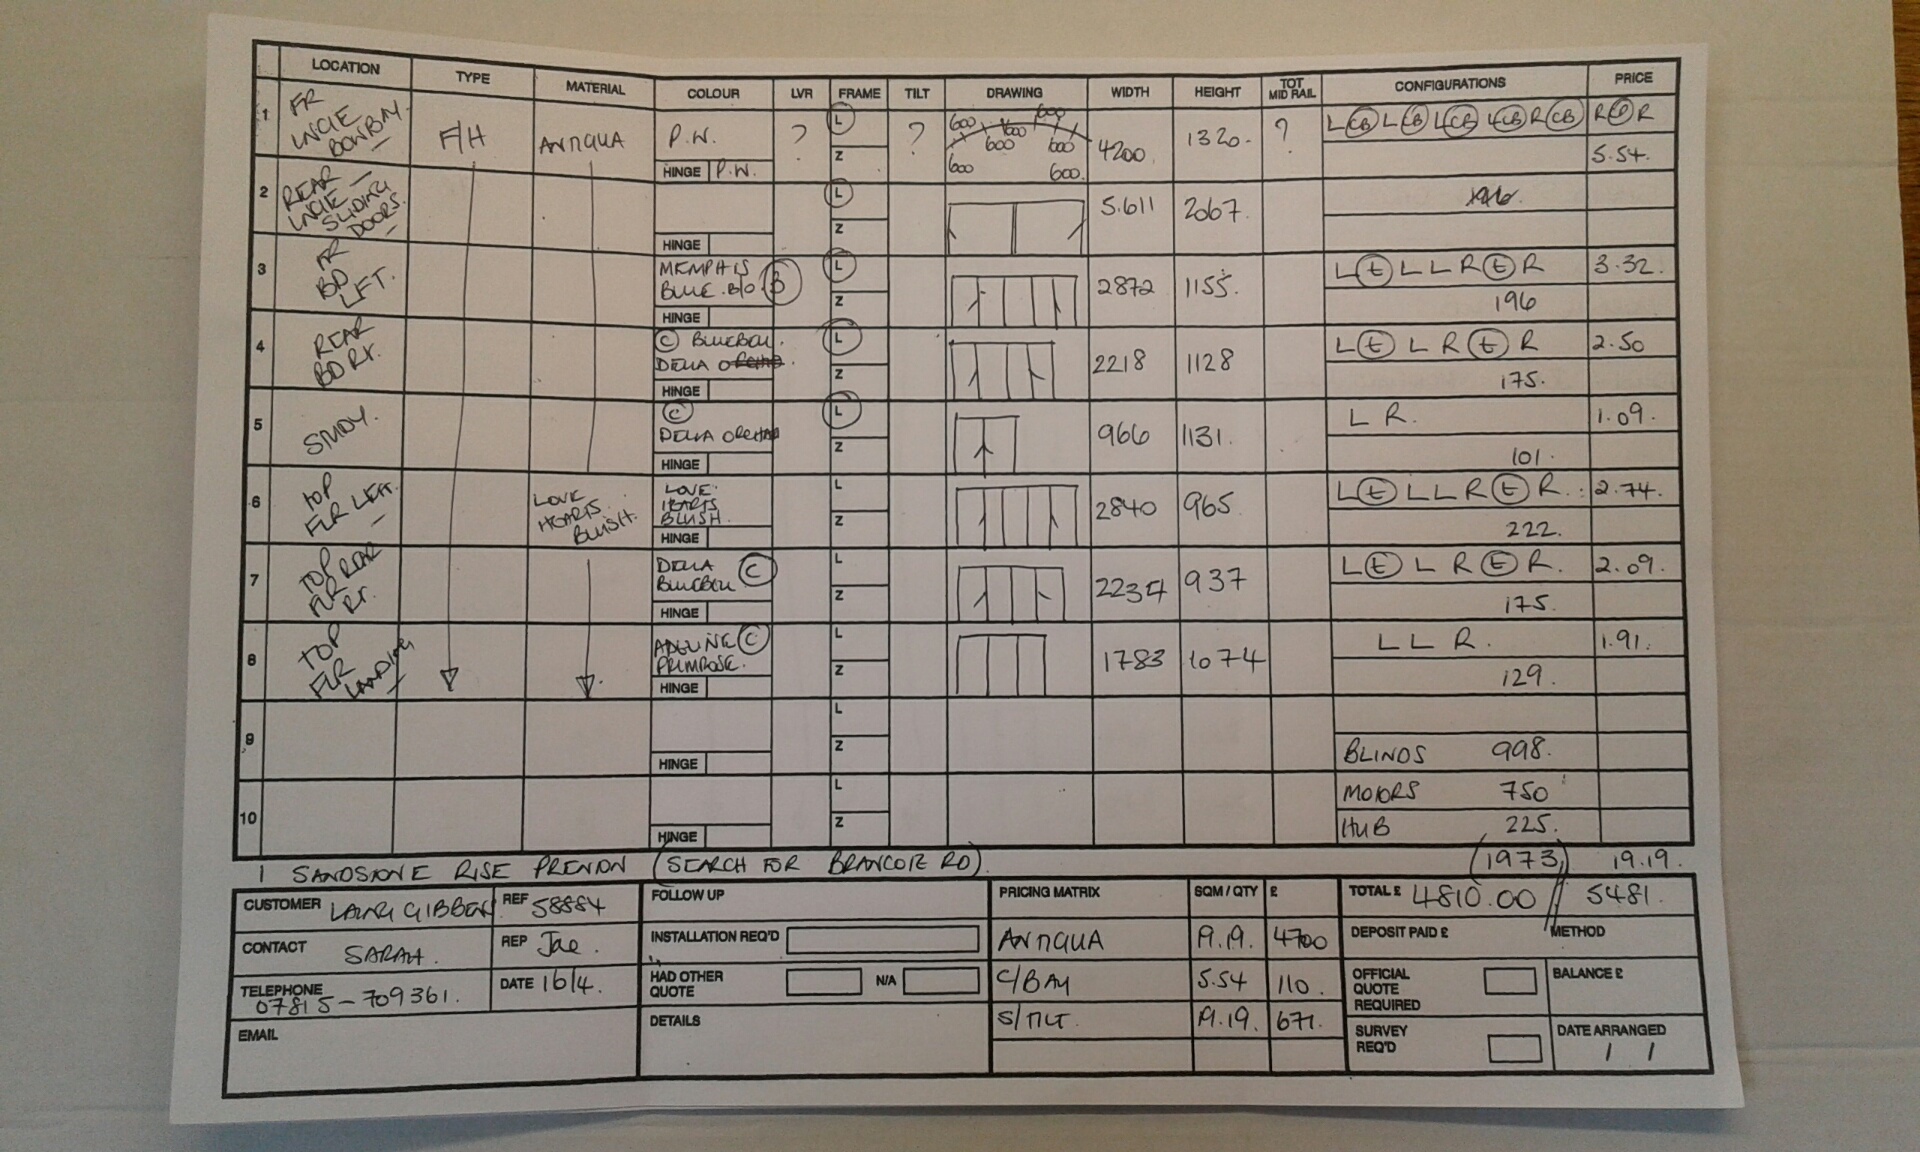 LOCATION TYPE MATERIAL COLOUR LVR FRAME TILT DRAWING WIDTH HEIGHT TOT MID RAIL CONFIGURATIONS PRICE
1 FR LNGIE BOWBAY. F/H ANTIQUA P.W. ? L ? 600 600 600 4200. 1320. ? L CB L CB L CB L CB R CB R P R
Z 600 600 5.54.
HINGE P.W. 600 600.
2 REAR LNGIE SLIDING DOORS. L 5.611 2067. 196.
Z
HINGE
3 FR BD LFT. MEMPHIS BLUE B/O B L 2872 1155. L t L L R t R 3.32.
Z 196
HINGE
4 REAR BD RT. C BLUEBELL. DELLA L 2218 1128 L t L R t R 2.50
Z 175.
HINGE
5 STUDY. C DELLA ORCHID L 966 1131. L R. 1.09.
Z 101.
HINGE
6 TOP FLR LEFT. LOVE HEARTS BLUSH. LOVE HEARTS BLUSH. L 2840 965. L t L L R t R. 2.74.
Z 222.
HINGE
7 TOP FLR REAR RT. DELLA BLUEBELL C L 2234 937 L t L R t R. 2.09.
Z 175.
HINGE
8 TOP FLR LANDING ADELINE C PRIMROSE. L 1783 1074 L L R. 1.91.
Z 129.
HINGE
9 L
Z BLINDS 998.
HINGE
10 L MOTORS 750
Z HUB 225.
HINGE
1 SANDSTONE RISE PRENTON (SEARCH FOR BRANCOTE RD). (1973) 19.19.
CUSTOMER REF 58884 FOLLOW UP PRICING MATRIX SQM / QTY £ TOTAL £ 4810.00 // 5481.
CONTACT SARAH. REP Jae. INSTALLATION REQ'D ANTIQUA 19.19. 4700 DEPOSIT PAID £ METHOD
TELEPHONE 07815-709361. DATE 16/4. HAD OTHER QUOTE N/A C/BAY 5.54 110. OFFICIAL QUOTE REQUIRED BALANCE £
EMAIL DETAILS S/TILT. 19.19. 671. SURVEY REQ'D DATE ARRANGED
/ /